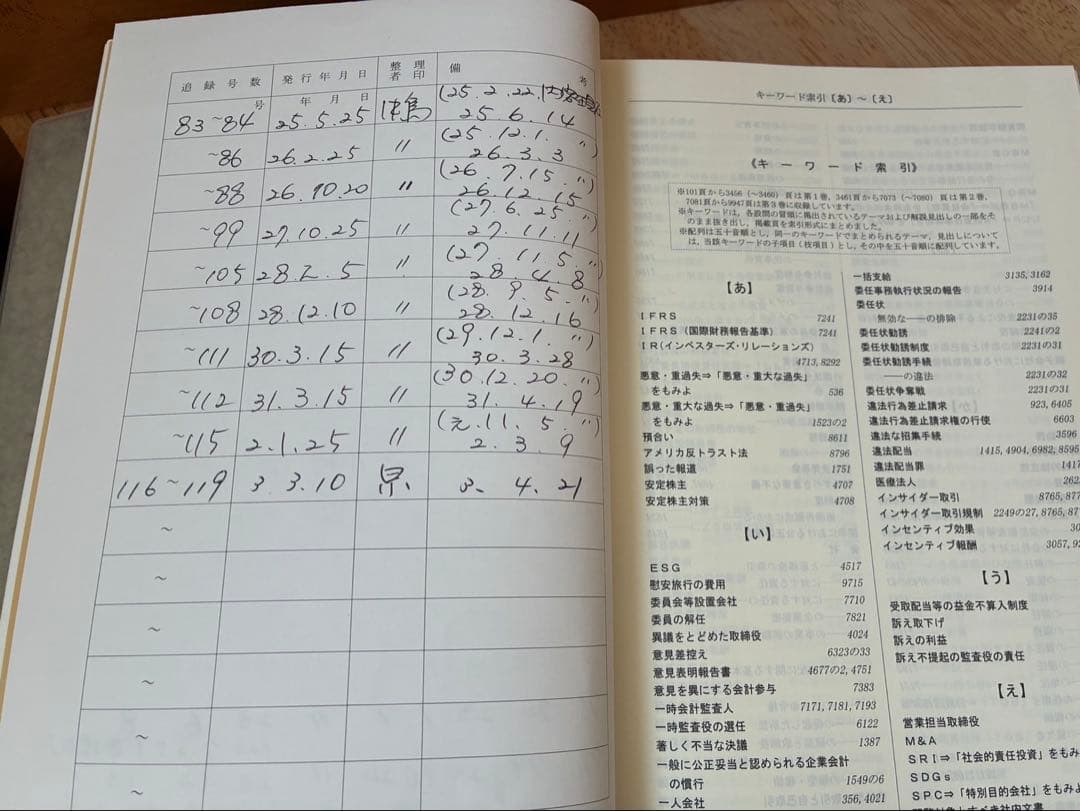 追録号数 発行年月日 整理者印 備考
号 年月日
83~84 25.5.25 (25.2.22.
25.6.14
~86 26.2.25 〃 (25.12.1. 〃)
26.3.3
~88 26.10.20 〃 (26.7.15. 〃)
26.12.15
~99 27.10.25 〃 (27.6.25. 〃)
27.11.11
~105 28.2.5 〃 (27.11.5. 〃)
28.4.8
~108 28.12.10 〃 (28.9.5. 〃)
28.12.16
~111 30.3.15 〃 (29.12.1. 〃)
30.3.28
~112 31.3.15 〃 (30.12.20. 〃)
31.4.19
~115 2.1.25 〃 (元.11.5. 〃)
2.3.9
116~119 3.3.10 3.4.21
~
~
~
~
~
~
キーワード索引〔あ〕~〔え〕
《キーワード索引》
※101頁から3456(~3460)頁は第1巻,3461頁から7073(~7080)頁は第2巻,
7081頁から9947頁は第3巻に収録しています。
※キーワードは,各設問の冒頭に掲出されているテーマおよび解説見出しの一部をその
まま抜き出し,掲載頁を索引形式にまとめました。
※配列は五十音順とし,同一のキーワードでまとめられるテーマ,見出しについて
は,当該キーワードの子項目(枝項目)とし,その中を五十音順に配列しています。
【あ】
IFRS 7241
IFRS(国際財務報告基準) 7241
IR(インベスターズ・リレーションズ)
4713, 8292
悪意・重過失⇒「悪意・重大な過失」
をもみよ 536
悪意・重大な過失⇒「悪意・重過失」
をもみよ 1523の2
預合い 8611
アメリカ反トラスト法 8796
誤った報道 1751
安定株主 4707
安定株主対策 4708
【い】
ESG 4517
慰安旅行の費用 9715
委員会等設置会社 7710
委員の解任 7821
異議をとどめた取締役 4024
意見差控え 6323の33
意見表明報告書 4677の2, 4751
意見を異にする会計参与 7383
一時会計監査人 7171, 7181, 7193
一時監査役の選任 6122
著しく不当な決議 1387
一般に公正妥当と認められる企業会計
の慣行 1549の6
一人会社 356, 4021
一括支給 3135, 3162
委任事務執行状況の報告 3914
委任状
無効な――の排除 2231の35
委任状勧誘 2241の2
委任状勧誘制度 2231の31
委任状勧誘手続
――の違法 2231の32
委任状争奪戦 2231の31
違法行為差止請求 923, 6405
違法行為差止請求権の行使 6603
違法な招集手続 3596
違法配当 1415, 4904, 6982, 8595
違法配当罪 1417
医療法人 262
インサイダー取引 8765, 877
インサイダー取引規制 2249の27, 8765, 87
インセンティブ効果 30
インセンティブ報酬 3057, 92
【う】
受取配当等の益金不算入制度
訴え取下げ
訴えの利益
訴え不提起の監査役の責任
【え】
営業担当取締役
M&A
SRI⇒「社会的責任投資」をもみ
SDGs
SPC⇒「特別目的会社」をもみよ